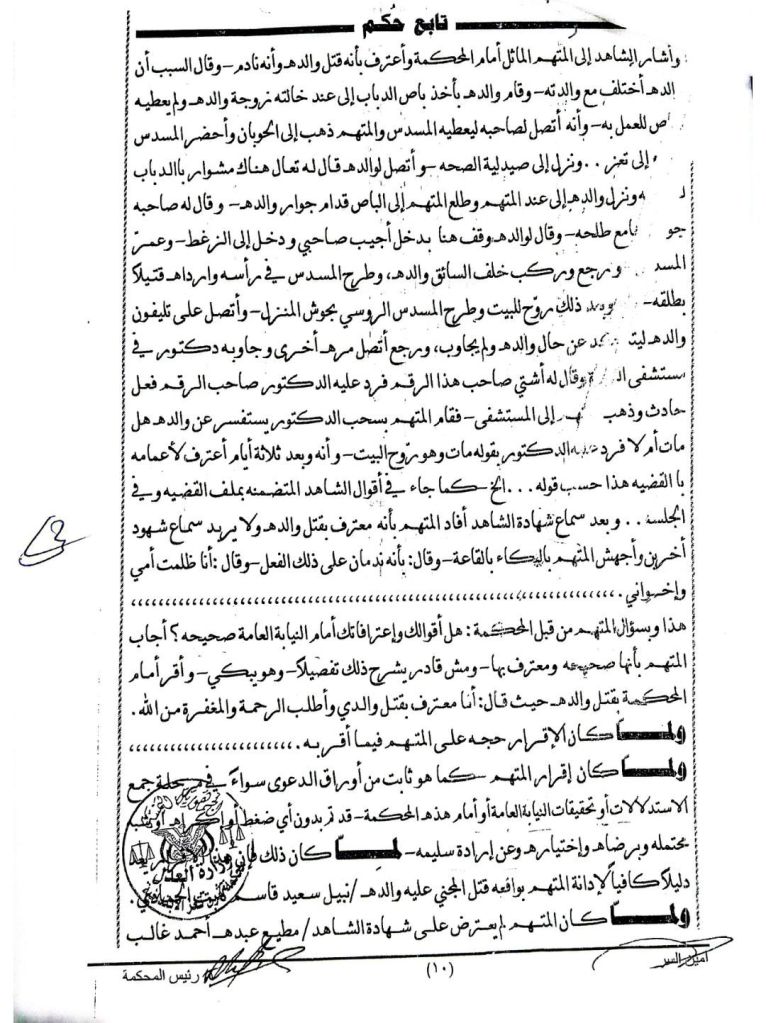 تابع حكم
وأشار الشاهد إلى المتهم الماثل أمام المحكمة وأعترف بأنه قتل والدهـ وأنه نادم - وقال السبب أن
الدهـ أختلف مع والدته - وقام والدهـ بأخذ باص الدباب إلى عند خالته زوجة والدهـ ولم يعطيه
ص للعمل به - وأنه أتصل لصاحبه ليعطيه المسدس والمتهم ذهب إلى الحوبان وأحضر المسدس
إلى تعز .. ونزل إلى صيدلية الصحه - وأتصل لوالدهـ قال له تعال هناك مشوار باالدباب
ونزل والدهـ إلى عند المتهم وطلع المتهم إلى الباص قدام جوار والدهـ - وقال له صاحبه
جو بامع طلحه - وقال لوالدهـ وقف هنا بدخل أجيب صاحبي ودخل إلى الزغط - وعمر
المسد ورجع وركب خلف السائق والدهـ، وطرح المسدس في رأسه وارداهـ قتيلاً
بطلقه - ذلك روّح للبيت وطرح المسدس الروسي بحوش المنزل - وأتصل على تليفون
والدهـ عن حال والدهـ ولم يجاوب، ورجع أتصل مرهـ أخرى وجاوبه دكتور في
مستشفى وقال له أشتي صاحب هذا الرقم فرد عليه الدكتور صاحب الرقم فعل
حادث وذهب إلى المستشفى - فقام المتهم بسحب الدكتور يستفسر عن والدهـ هل
مات أم لا فرد عليه الدكتور بقوله مات وهو روّح البيت - وأنه وبعد ثلاثة أيام أعترف لأعمامه
با القضيه هذا حسب قوله ... الخ - كما جاء في أقوال الشاهد المتضمنه بملف القضيه وفي
الجلسة .. وبعد سماع شهادة الشاهد أفاد المتهم بأنه معترف بقتل والدهـ ولا يريد سماع شهود
أخرين وأجهش المتهم بالبكاء بالقاعة - وقال: بأنه ندمان على ذلك الفعل - وقال: أنا ظلمت أمي
وإخواني .،،،،،،،،،،،،،،،،،،،،،،،،،،،،،،،،،،،،،،،،
هذا وبسؤال المتهم من قبل المحكمة: هل أقوالك وإعترافاتك أمام النيابة العامة صحيحه؟ أجاب
المتهم بأنها صحيحه ومعترف بها - ومش قادر يشرح ذلك تفصيلاً - وهو يبكي - وأقر أمام
المحكمة بقتل والدهـ حيث قال: أنا معترف بقتل والدي وأطلب الرحمة والمغفرة من الله.
ولما كان الإقرار حجه على المتهم فيما أقر به .،،،،،،،،،،،،،،،،،،،،،،
ولما كان إقرار المتهم - كما هو ثابت من أوراق الدعوى سواءً في مرحلة جمع
الاستدلالات أو تحقيقات النيابة العامة أو أمام هذه المحكمة - قد تم بدون أي ضغط أو إكراهـ أو
محتمله وبرضاهـ وإختيارهـ وعن إرادة سليمه - لما كان ذلك فإن هذا
دليلاً كافياً لإدانة المتهم بواقعه قتل المجني عليه والدهـ / نبيل سعيد قاسم
ولما كان المتهم لم يعترض على شهادة الشاهد / مطيع عبدهـ أحمد غالب
أمين السر
(١٠)
رئيس المحكمة